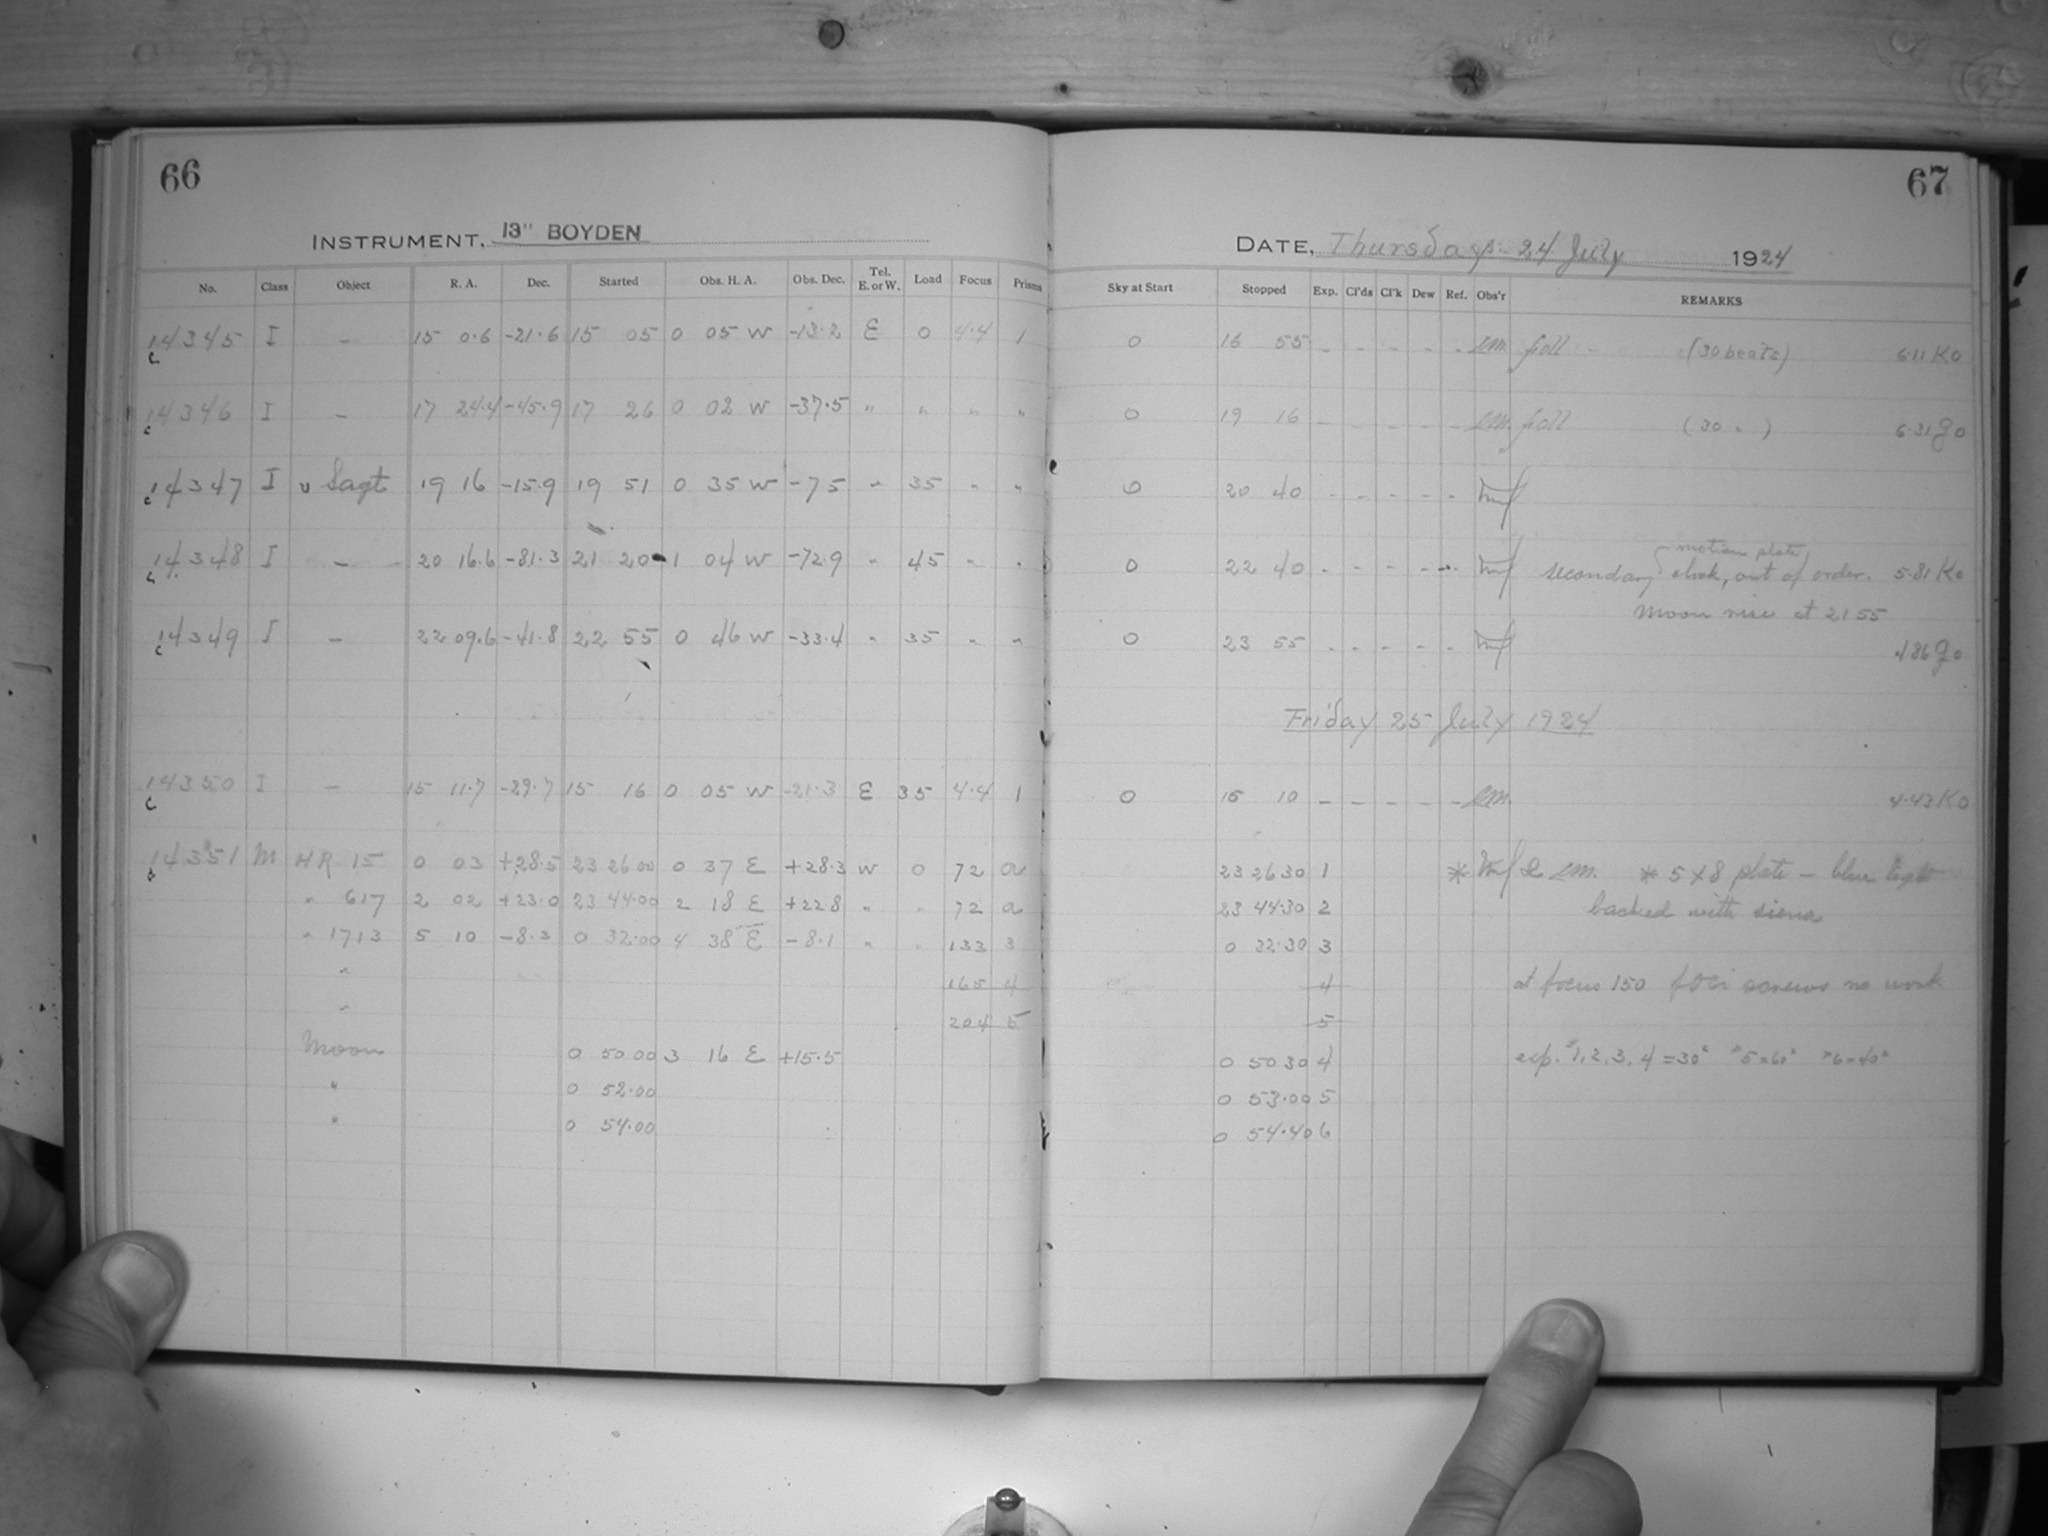 66
INSTRUMENT, 13" BOYDEN
No. Class Object R. A. Dec. Started Obs. H. A. Obs. Dec. Tel. E. or W. Load Focus Prisms
14345 I - 15 0.6 -21.6 15 05 0 05 W -13.2 E 0 4.4 1
c
14346 I - 17 24.4 -45.9 17 26 0 02 W -37.5 " " " "
c
14347 I υ Sagt 19 16 -15.9 19 51 0 35 W -7.5 " 35 " "
c
14348 I - 20 16.6 -81.3 21 20 1 04 W -72.9 " 45 " "
c
14349 I - 22 09.6 -41.8 22 55 0 46 W -33.4 " 35 " "
c
14350 I - 15 11.7 -29.7 15 16 0 05 W -21.3 E 35 4.4 1
c
14351 M HR 15 0 03 +28.5 23 26 00 0 37 E +28.3 W 0 72 a
c
" 617 2 02 +23.0 23 44.00 2 18 E +22.8 " " 72 a
" 1713 5 10 -8.3 0 32.00 4 38 E -8.1 " " 133 3
" 165 4
" 204 5
Moon 0 50 00 3 16 E +15.5
" 0 52.00
" 0 54.00
67
DATE, Thursday 24 July 1924
Sky at Start Stopped Exp. Cl'ds Cl'k Dew Ref. Obs'r REMARKS
0 16 55 - - - - - LM. foll - (30 beats) 6.11 K0
0 19 16 - - - - - LM. foll (30 " ) 6.31 g0
0 20 40 - - - - -
0 22 40 - - - - - motion plate
secondary clock, out of order. 5.81 K0
Moon rise at 21 55
0 23 55 - - - - - 4.86 g0
Friday 25 July 1924
0 16 10 - - - - - LM. 4.43 K0
23 26 30 1 * & LM. * 5 x 8 plate - blue light
23 44.30 2 backed with sienna
0 32.30 3
4 at focus 150 foci screws no work
5
0 50 30 4 exp. #1, 2, 3, 4 = 30s #5 = 60s #6 = 40s
0 53.00 5
0 54.40 6